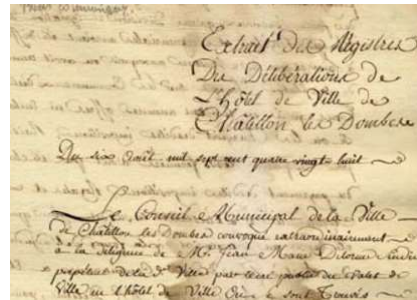 Extrait des Régistres
Des Délibérations de
L'hôtel de Ville de
Chatillon les Dombes
Du six Août mil sept cent quatre vingt huit
Le Conseil Municipal de la Ville
de Chatillon les Dombes convoqué extraordinairement
à la diligence de Mr. Jean Marie Delorme Sindic
perpétuel de lad. Ville par
Ville en l'hôtel de Ville